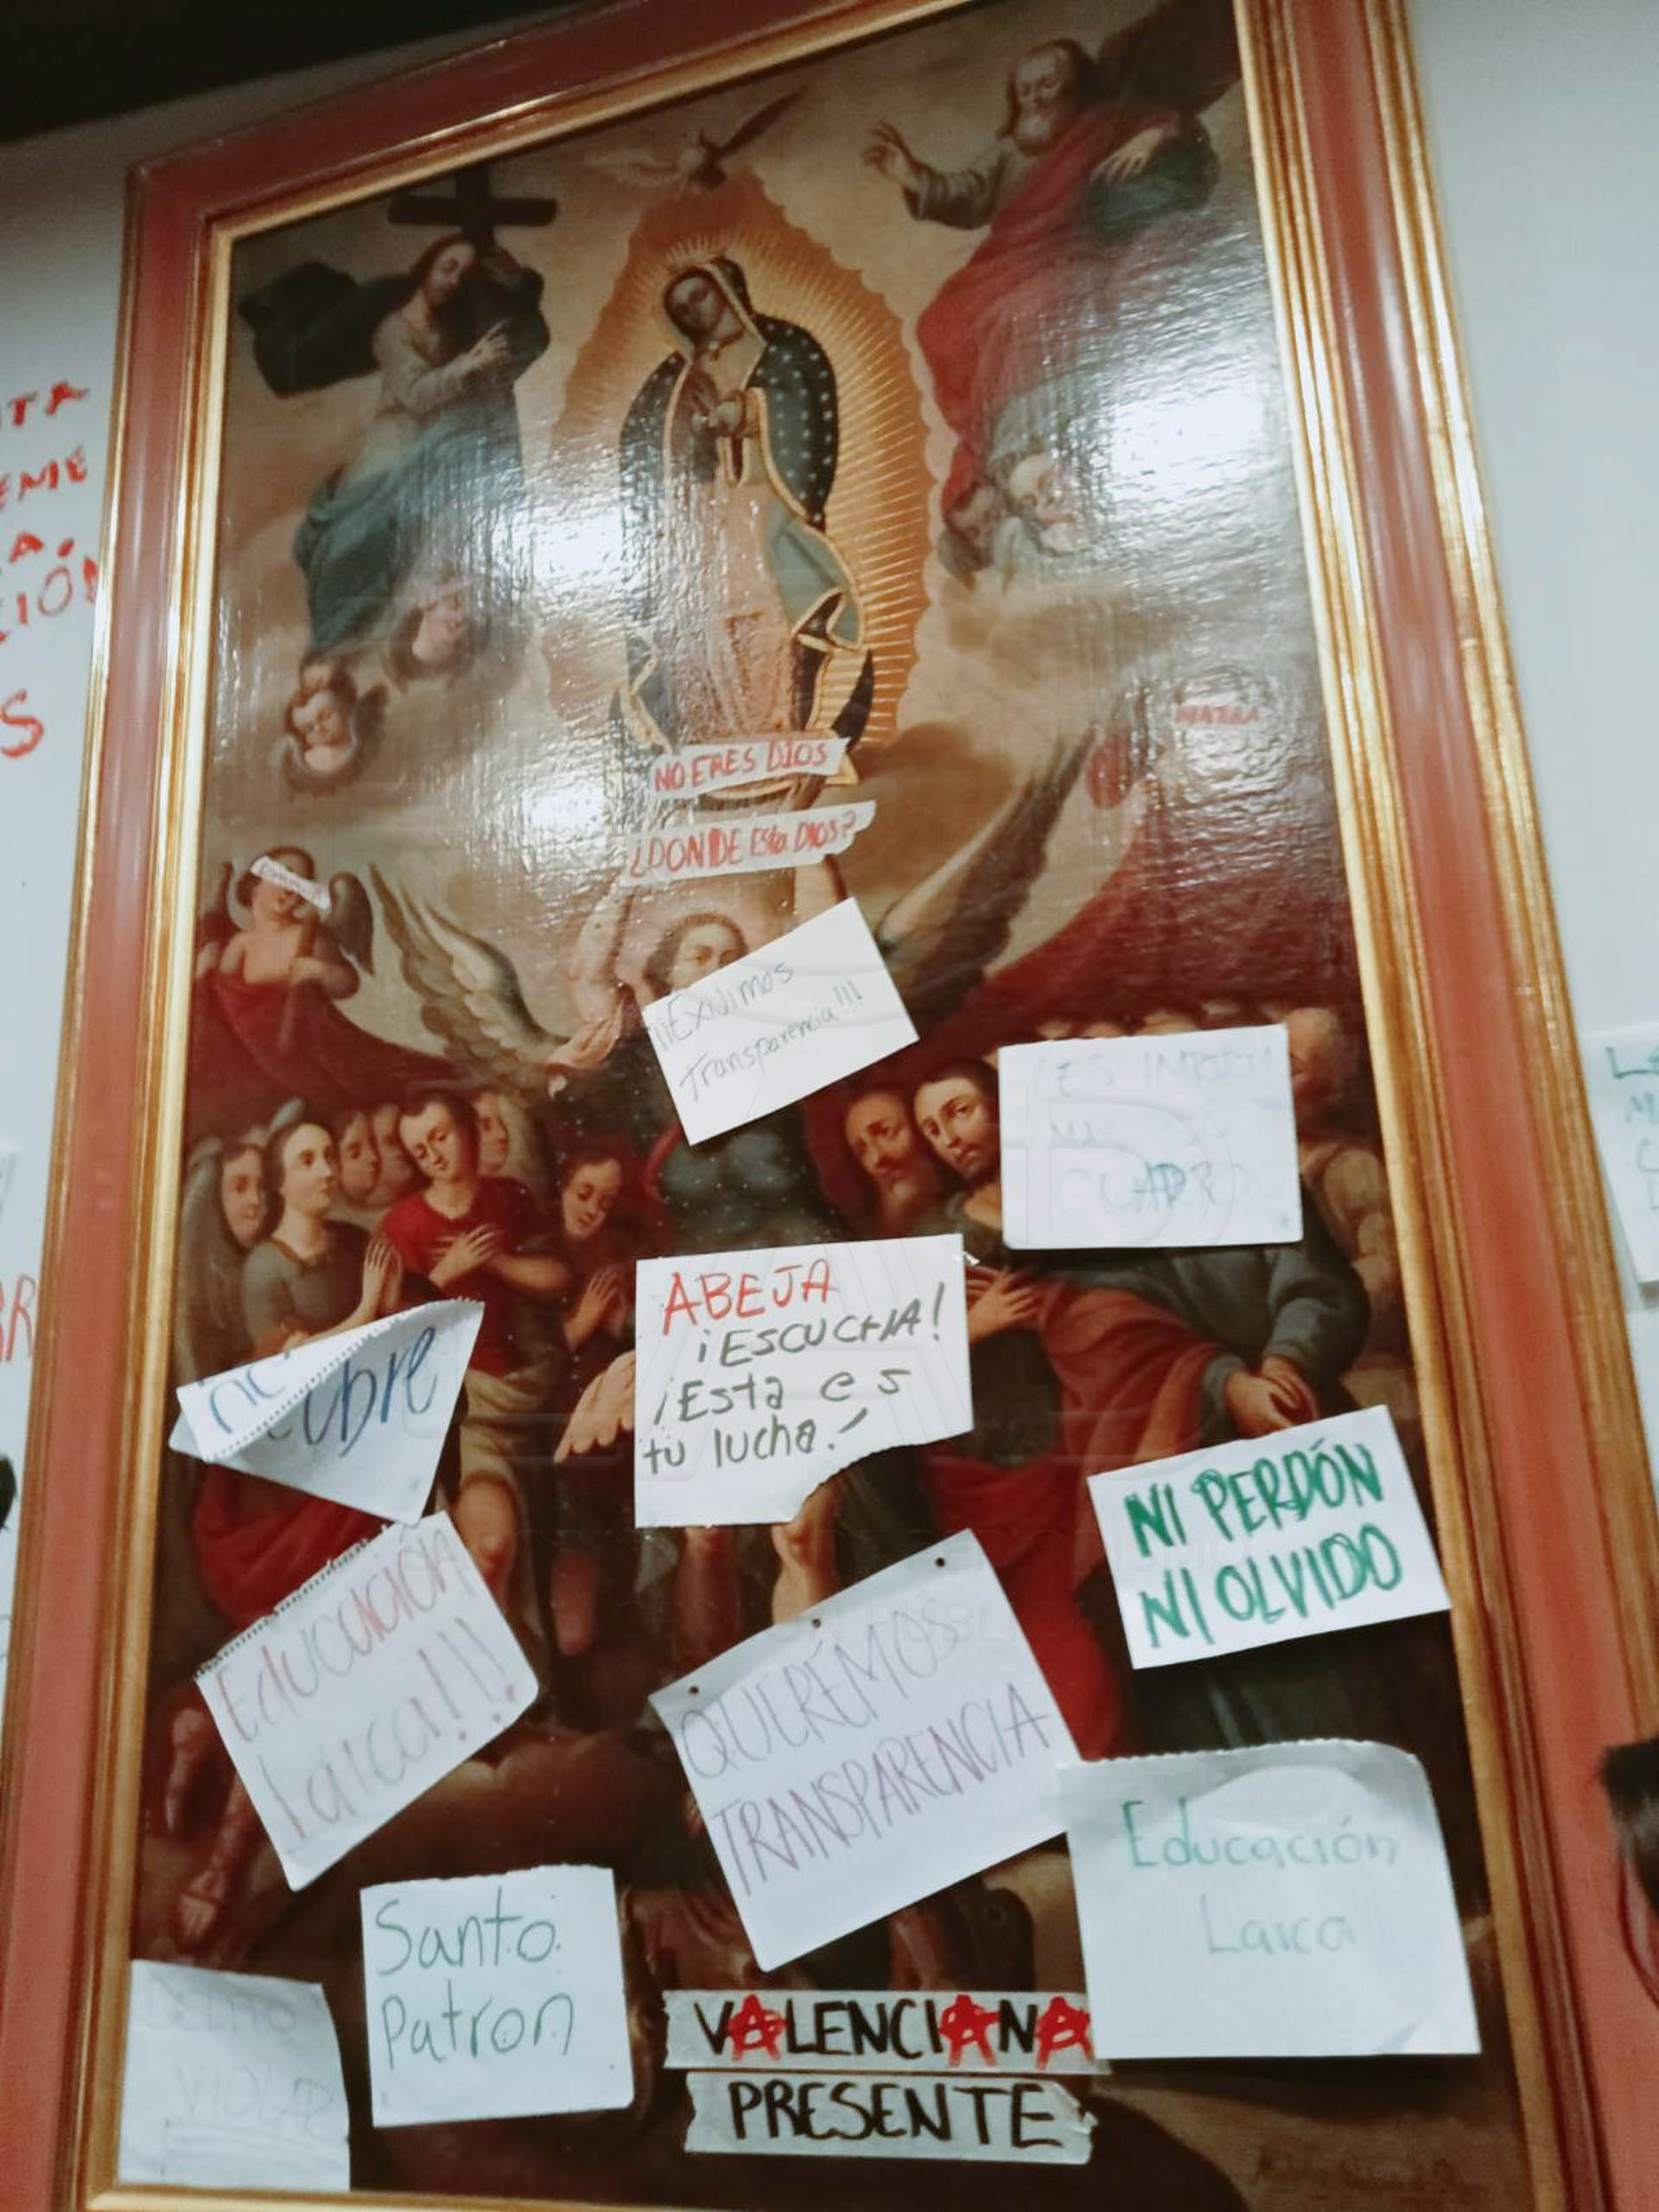 TA
ENE
A.
CIÓN
S
NO ERES DIOS
¿DONDE Esta DIOS?
¡¡¡EXIJIMOS
transparencia!!!
ES
MAS
CUADRO
ABEJA
¡ESCUCHA!
¡Esta es
tu lucha!
ubre
NI PERDÓN
NI OLVIDO
EDUCACIÓN
Laica!!!
QUEREMOS
TRANSPARENCIA
Educación
Laica
Santo
Patron
VIOLAR
VALENCIANA
PRESENTE